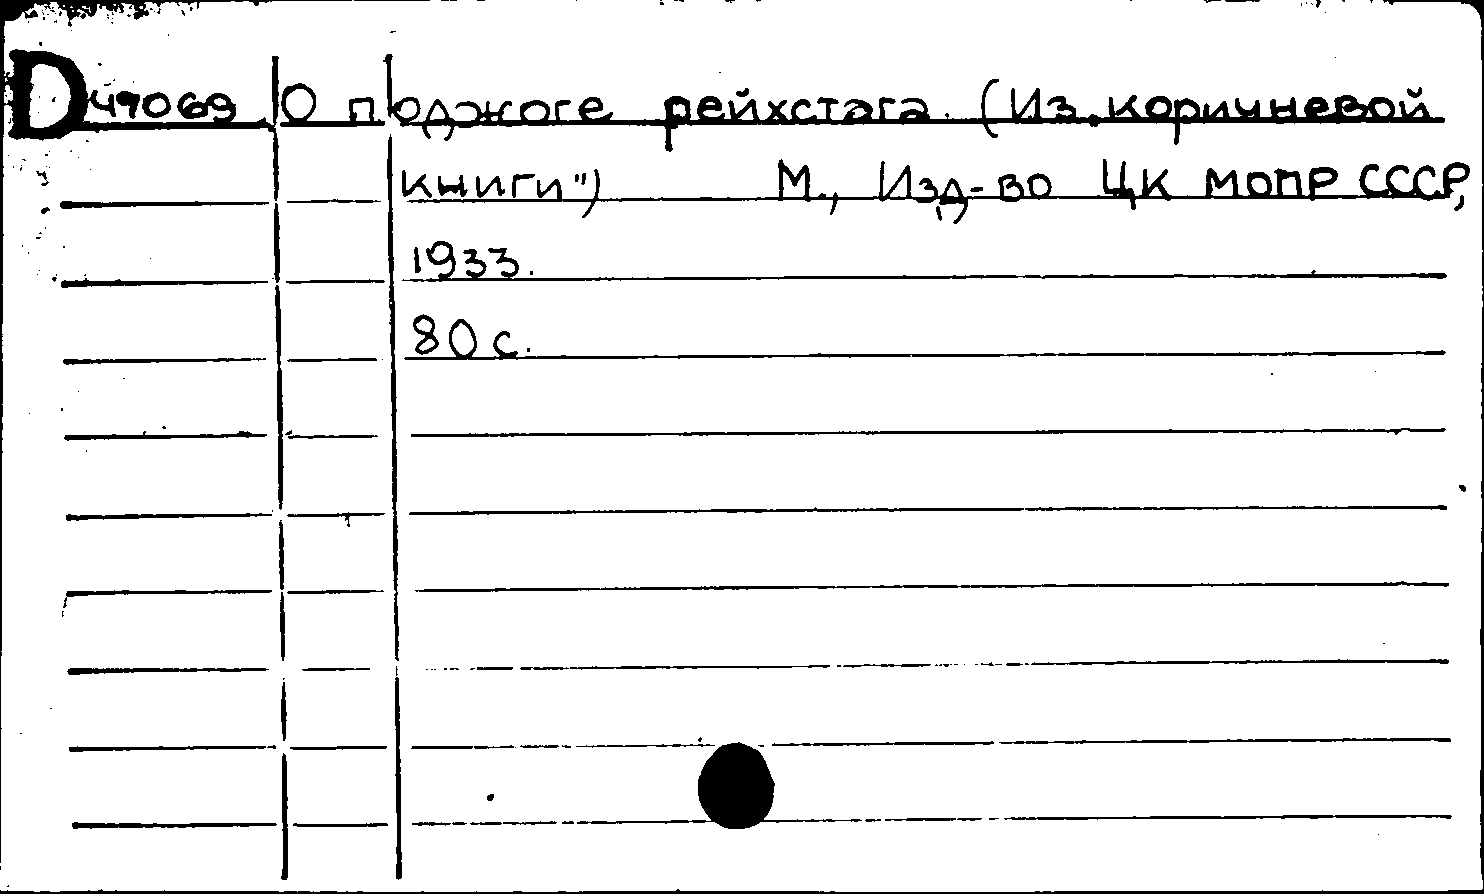 D 49069 О поджоге рейхстага. (Из „коричневой
книги") М., Изд-во ЦК МОПР СССР,
1933.
80 с.